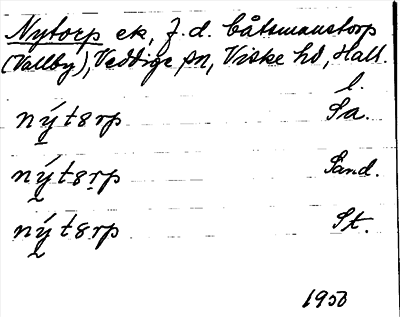 Nytorp ek, f.d. båtsmanstorp
(Vallby), Veddige sn, Viske hd, Hall.
l.
nýtorp Sa.
nýtorp Sand.
nýtorp St.
1950